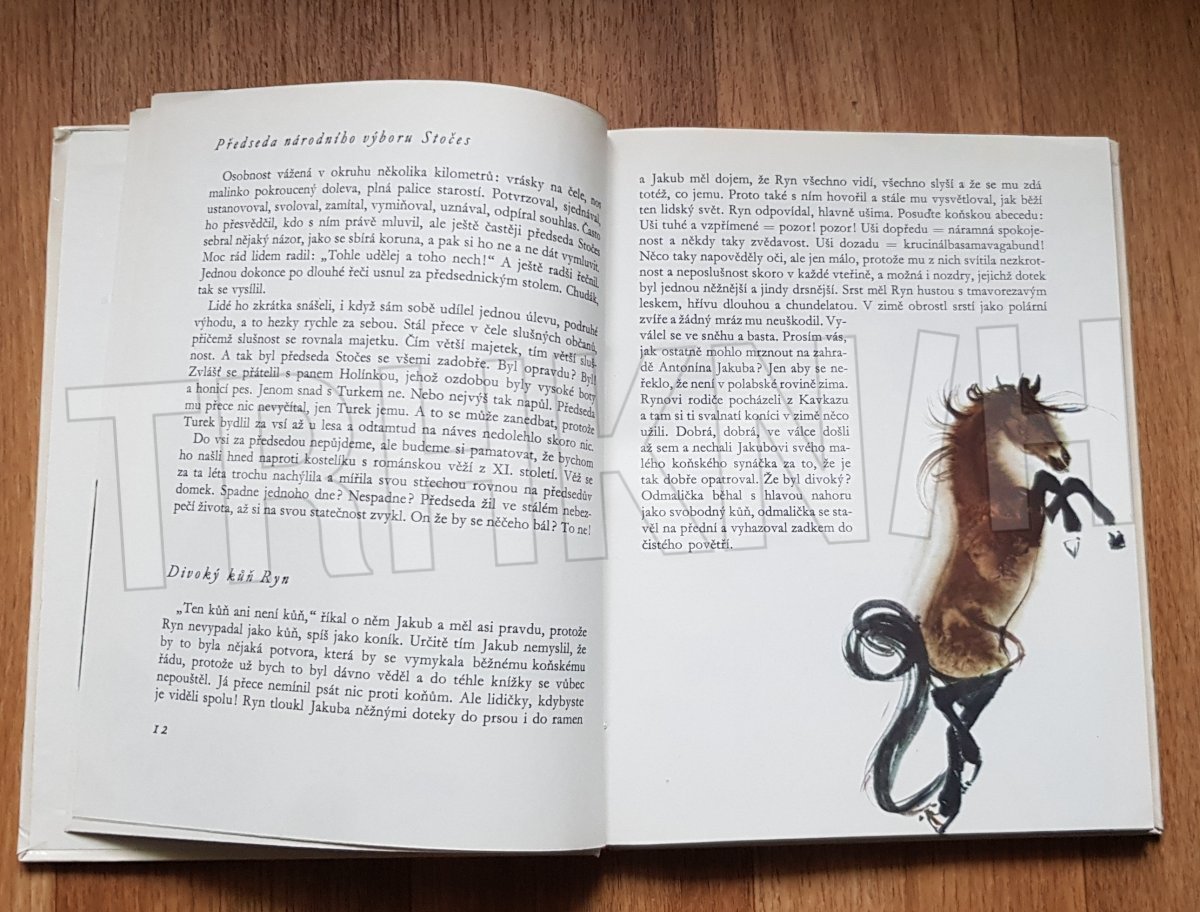 Předseda národního výboru Stočes
Osobnost vážená v okruhu několika kilometrů: vrásky na čele, nos
malinko pokroucený doleva, plná palice starostí. Potvrzoval, sjednával,
ustanovoval, svoloval, zamítal, vymiňoval, uznával, odpíral souhlas. Často
ho přesvědčil, kdo s ním právě mluvil, ale ještě častěji předseda Stočes
sebral nějaký názor, jako se sbírá koruna, a pak si ho ne a ne dát vymluvit.
Moc rád lidem radil: „Tohle udělej a toho nech!“ A ještě radši řečnil.
Jednou dokonce po dlouhé řeči usnul za předsednickým stolem. Chudák,
tak se vysílil.
Lidé ho zkrátka snášeli, i když sám sobě udílel jednou úlevu, podruhé
výhodu, a to hezky rychle za sebou. Stál přece v čele slušných občanů,
přičemž slušnost se rovnala majetku. Čím větší majetek, tím větší sluš-
nost. A tak byl předseda Stočes se všemi zadobře. Byl opravdu? Byl!
Zvlášť se přátelil s panem Holínkou, jehož ozdobou byly vysoké boty
a honicí pes. Jenom snad s Turkem ne. Nebo nejvýš tak napůl. Předseda
mu přece nic nevyčítal, jen Turek jemu. A to se může zanedbat, protože
Turek bydlil za vsí až u lesa a odtamtud na náves nedolehlo skoro nic.
Do vsi za předsedou nepůjdeme, ale budeme si pamatovat, že bychom
ho našli hned naproti kostelíku s románskou věží z XI. století. Věž se
za ta léta trochu nachýlila a mířila svou střechou rovnou na předsedův
domek. Spadne jednoho dne? Nespadne? Předseda žil ve stálém nebez-
pečí života, až si na svou statečnost zvykl. On že by se něčeho bál? To ne!
Divoký kůň Ryn
„Ten kůň ani není kůň,“ říkal o něm Jakub a měl asi pravdu, protože
Ryn nevypadal jako kůň, spíš jako koník. Určitě tím Jakub nemyslil, že
by to byla nějaká potvora, která by se vymykala běžnému koňskému
řádu, protože už bych to byl dávno věděl a do téhle knížky se vůbec
nepouštěl. Já přece nemínil psát nic proti koňům. Ale lidičky, kdybyste
je viděli spolu! Ryn tloukl Jakuba něžnými doteky do prsou i do ramen
12
a Jakub měl dojem, že Ryn všechno vidí, všechno slyší a že se mu zdá
totéž, co jemu. Proto také s ním hovořil a stále mu vysvětloval, jak běží
ten lidský svět. Ryn odpovídal, hlavně ušima. Posuďte koňskou abecedu:
Uši tuhé a vzpřímené = pozor! pozor! Uši dopředu = náramná spokoje-
nost a někdy taky zvědavost. Uši dozadu = krucinálbasamavagabund!
Něco taky napověděly oči, ale jen málo, protože mu z nich svítila nezkrot-
nost a neposlušnost skoro v každé vteřině, a možná i nozdry, jejichž dotek
byl jednou něžnější a jindy drsnější. Srst měl Ryn hustou s tmavorezavým
leskem, hřívu dlouhou a chundelatou. V zimě obrostl srstí jako polární
zvíře a žádný mráz mu neuškodil. Vy-
válel se ve sněhu a basta. Prosím vás,
jak ostatně mohlo mrznout na zahra-
dě Antonína Jakuba? Jen aby se ne-
řeklo, že není v polabské rovině zima.
Rynovi rodiče pocházeli z Kavkazu
a tam si ti svalnatí koníci v zimě něco
užili. Dobrá, dobrá, ve válce došli
až sem a nechali Jakubovi svého ma-
lého koňského synáčka za to, že je
tak dobře opatroval. Že byl divoký?
Odmalička běhal s hlavou nahoru
jako svobodný kůň, odmalička se sta-
věl na přední a vyhazoval zadkem do
čistého povětří.
TRHKNIH